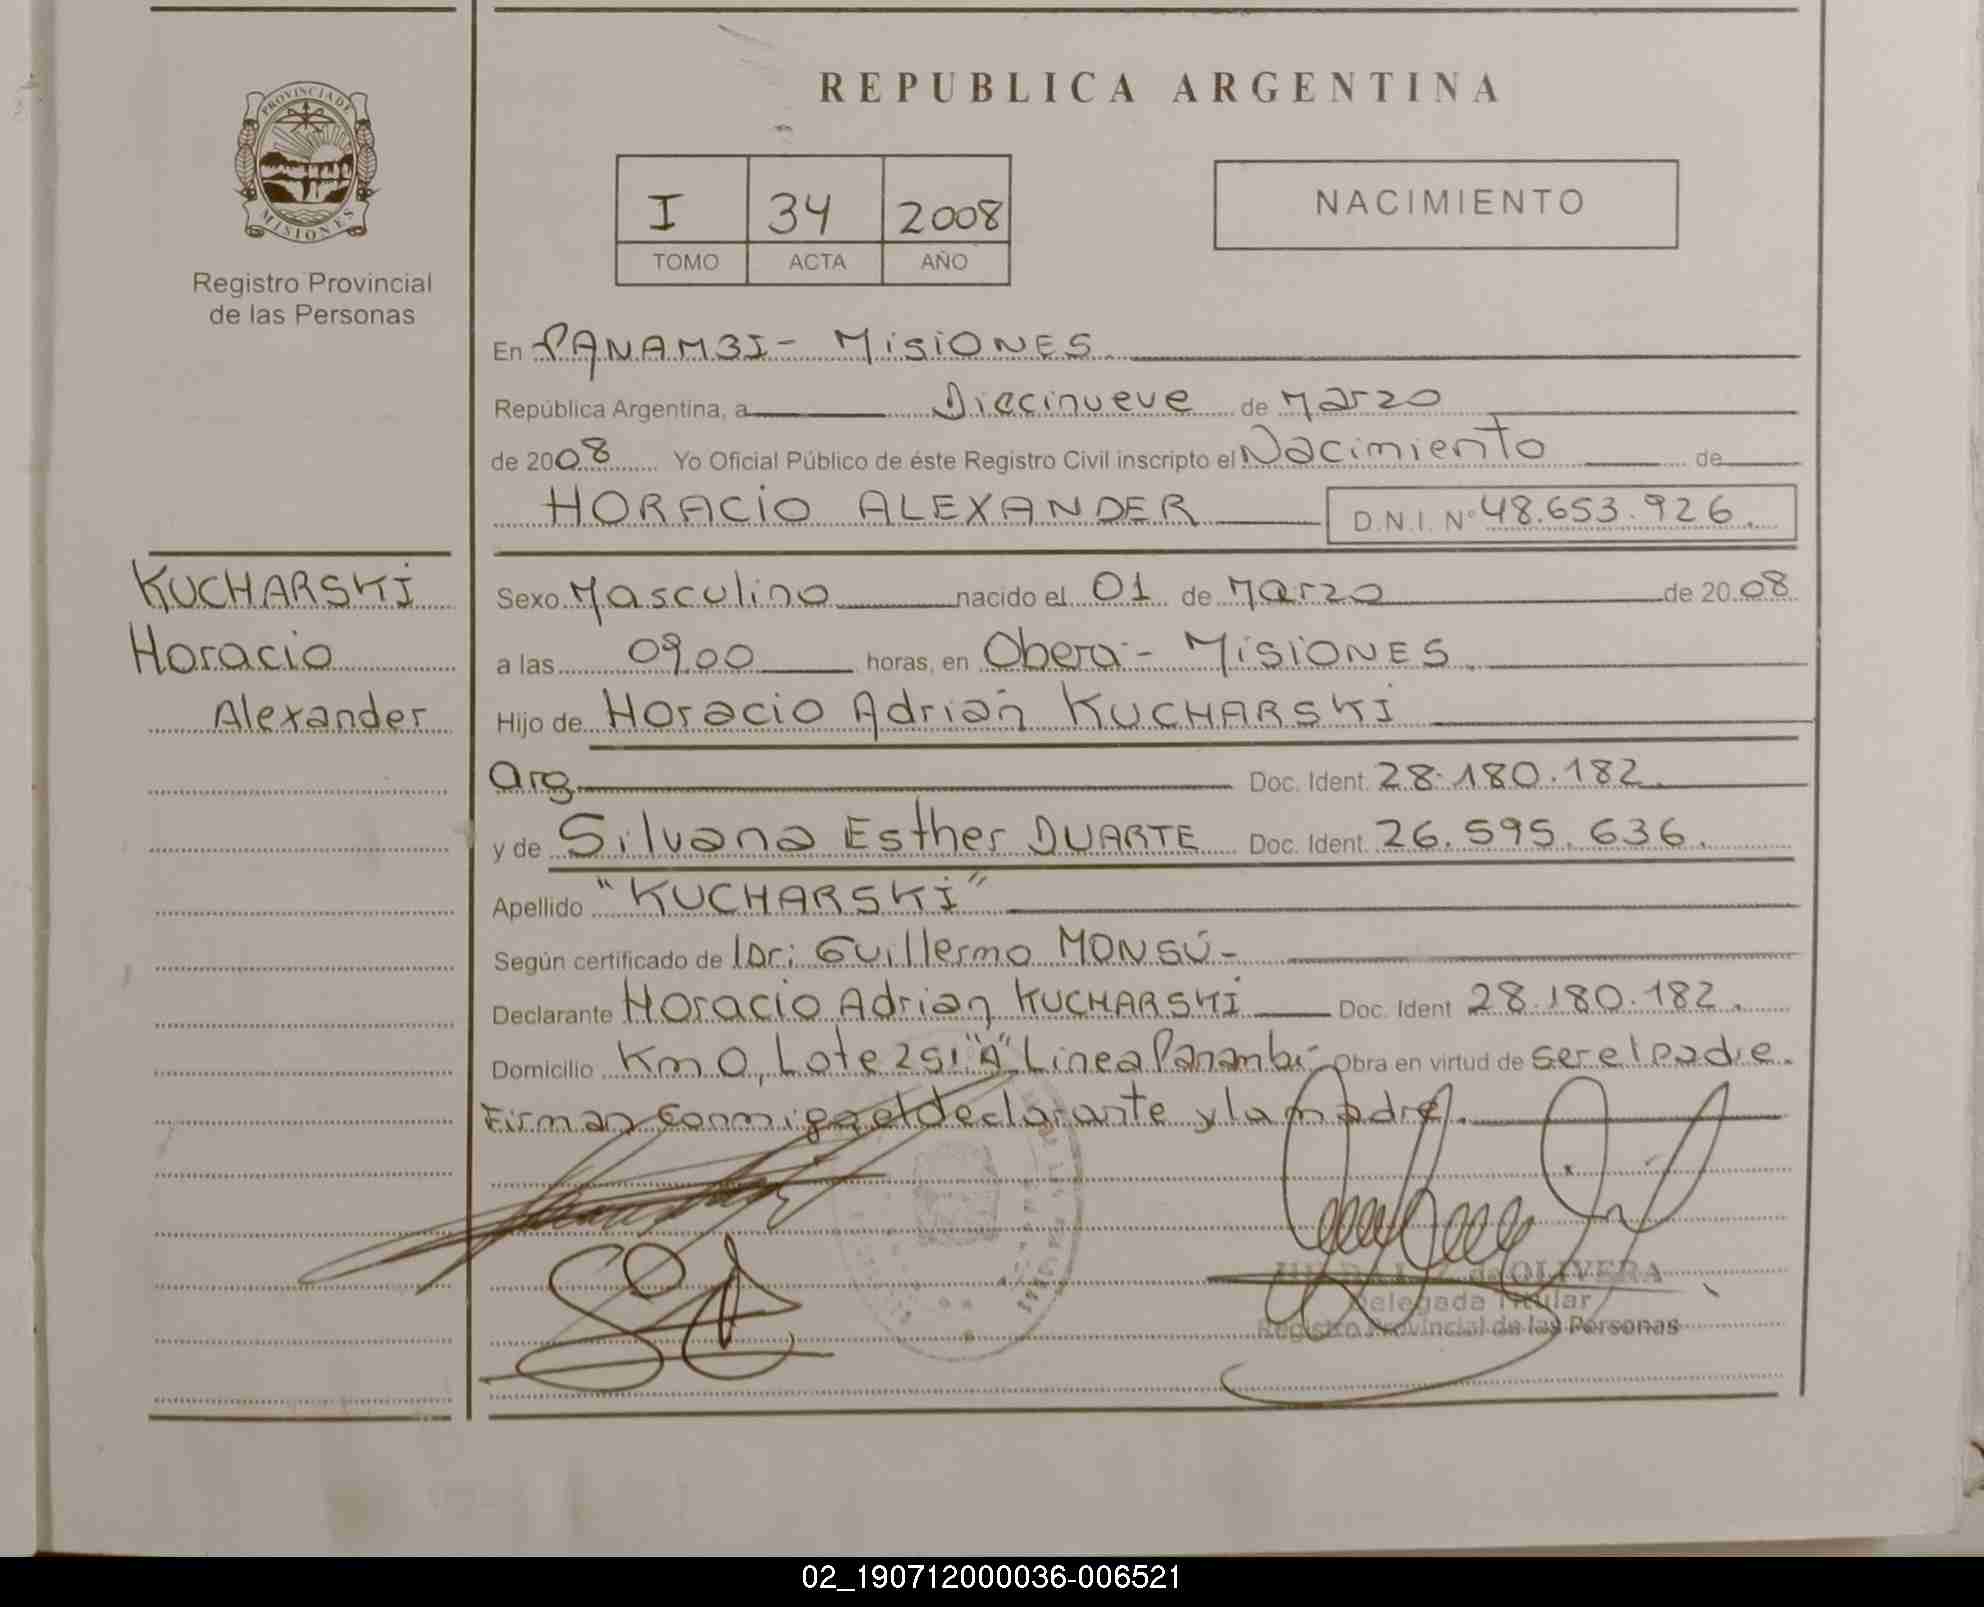 PROVINCIA DE
MISIONES
Registro Provincial
de las Personas
KUCHARSKI
Horacio
Alexander
REPUBLICA ARGENTINA
I 34 2008
TOMO ACTA AÑO
NACIMIENTO
En PANAMBI - MisiONES
República Argentina, a Diecinueve de Marzo
de 2008 Yo Oficial Público de éste Registro Civil inscripto el Nacimiento de
HORACIO ALEXANDER D.N.I. N° 48.653.926.
Sexo Masculino nacido el 01 de Marzo de 2008
a las 09.00 horas, en Oberá - MISIONES.
Hijo de Horacio Adrián KUCHARSKI
Arg Doc. Ident. 28.180.182.
y de Silvana Esther DUARTE Doc. Ident. 26.595.636.
Apellido "KUCHARSKI"
Según certificado de Guillermo MONSÚ -
Declarante Horacio Adrian KUCHARSKI Doc. Ident 28.180.182.
Domicilio Km 0, Lote 251 "A" Linea Panambi - Obra en virtud de ser el padre.
Firman conmigo el declarante y la madre.
de OLIVERA
Delegada Titular
Registro Provincial de las Personas
02_190712000036-006521